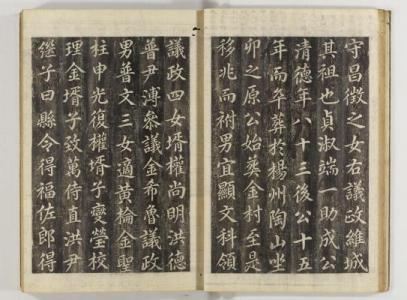 守昌徵之女右議政維城
其祖也貞淑端一助成公
清德年八十三後公十五
年而卒葬於楊州陶山坐
卯之原公始葬金村至是
移兆而祔男宜顯文科領
議政四女壻權尚明洪德
普尹漙參議金希魯議政
男普文三女適黃棆金聖
柱申光復權壻子燮瑩校
理金壻子致萬侍直洪尹
繼子曰縣令得福佐郎得